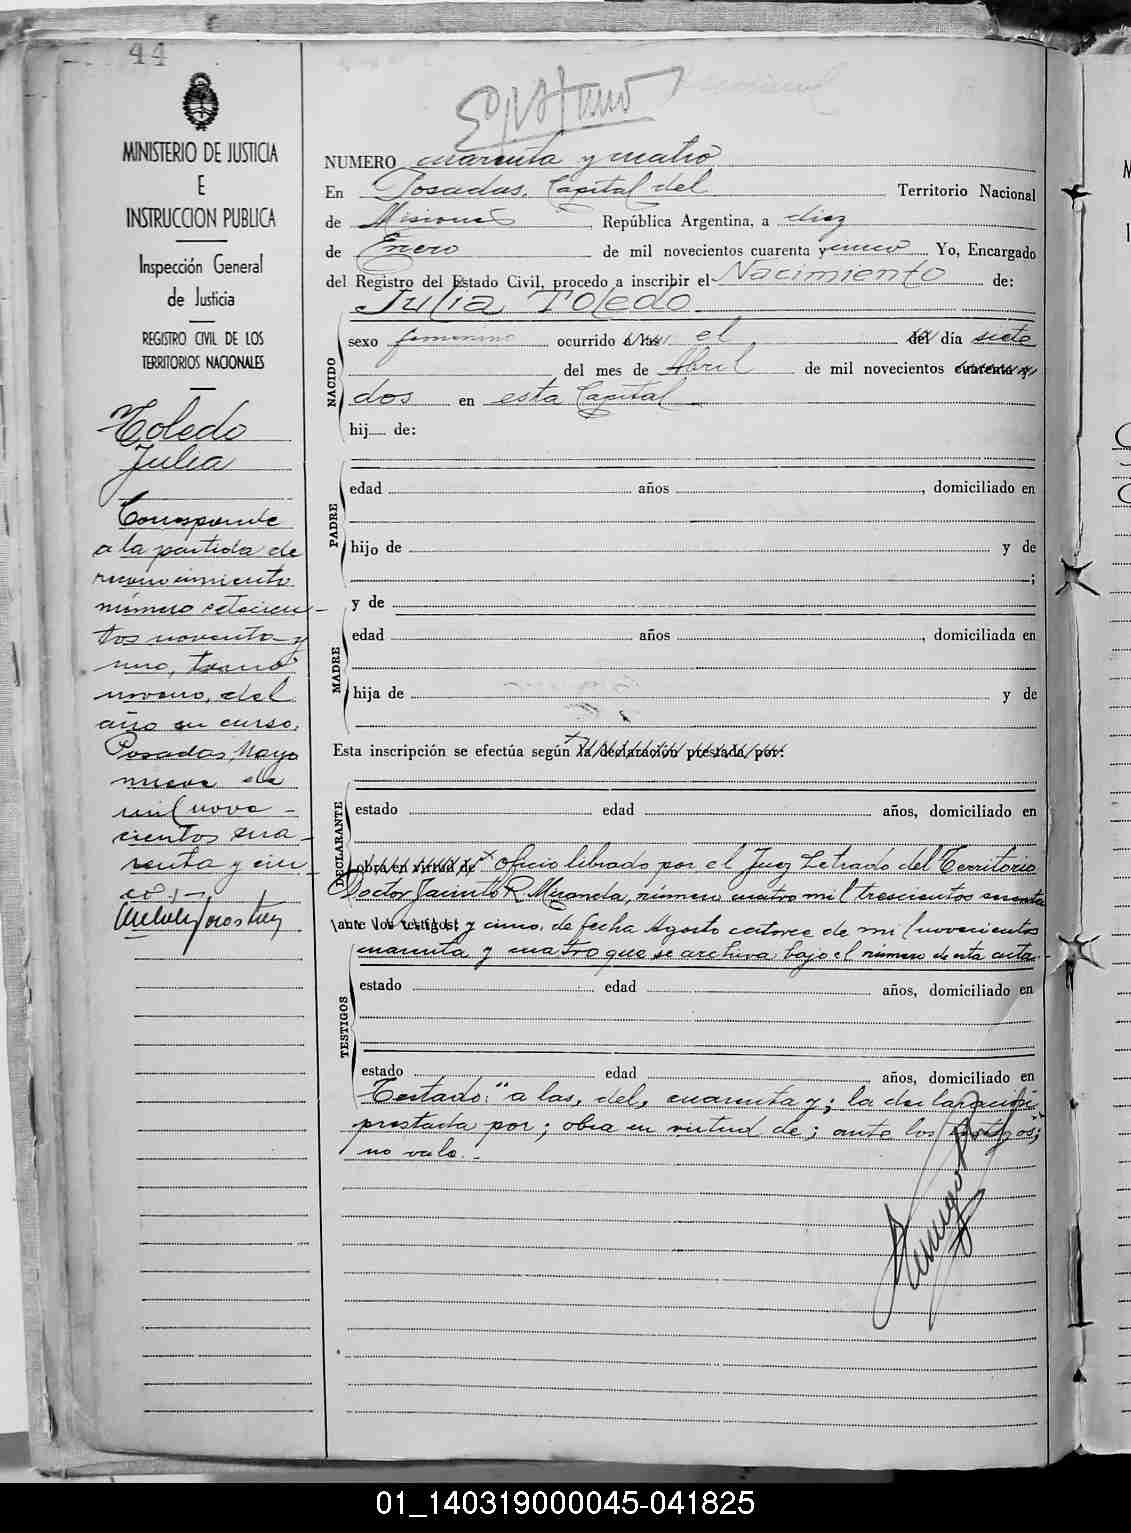 44
MINISTERIO DE JUSTICIA
E
INSTRUCCION PUBLICA
Inspección General
de Justicia
REGISTRO CIVIL DE LOS
TERRITORIOS NACIONALES
Toledo
Julia
Corresponde
a la partida de
reconocimiento
número setecien-
tos noventa y
uno, tomo
noveno, del
año en curso.
Posadas, Mayo
nueve de
mil nove-
cientos cua-
renta y cin-
co.-
NUMERO cuarenta y cuatro
En Posadas, Capital del Territorio Nacional
de Misiones, República Argentina, a diez
de Enero de mil novecientos cuarenta y cinco Yo, Encargado
del Registro del Estado Civil, procedo a inscribir el Nacimiento de:
Julia Toledo
NACIDO
sexo femenino ocurrido a las el del día siete
del mes de Abril de mil novecientos cuarenta y
dos en esta Capital
hij de:
PADRE
edad años , domiciliado en
hijo de y de
;
y de
MADRE
edad años , domiciliada en
hija de y de
Esta inscripción se efectúa según la declaración prestada por:
DECLARANTE
estado edad años, domiciliado en
obra en virtud de Oficio librado por el Juez Letrado del Territorio
Doctor Jacinto R. Miranda, número cuatro mil trescientos
ante los testigos: y cinco, de fecha Agosto catorce de mil novecientos
cuarenta y cuatro que se archiva bajo el número de esta acta.-
TESTIGOS
estado edad años, domiciliado en
estado edad años, domiciliado en
Testado: "a las, del, cuarenta y; la declaración
prestada por; obra en virtud de; ante los testigos;
no vale.-
01_140319000045-041825